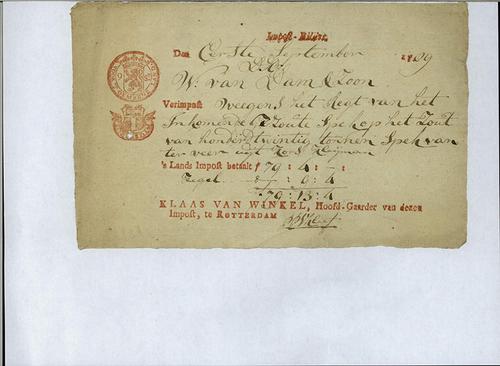 Impost-Billet,
Den Eerste September 1809
W. van Dam & Zoon
Verimpost Weegens het Regt van het
Inkomende Zoute Spek op het Zout
van honderdtwintig tonnen Spek van
ter veer
's Lands Impost betaalt f 79 : 4 : -
Zegel - : 9 : 4
79 : 13 : 4
KLAAS VAN WINKEL, Hoofd-Gaarder van dezen
Impost, te ROTTERDAM